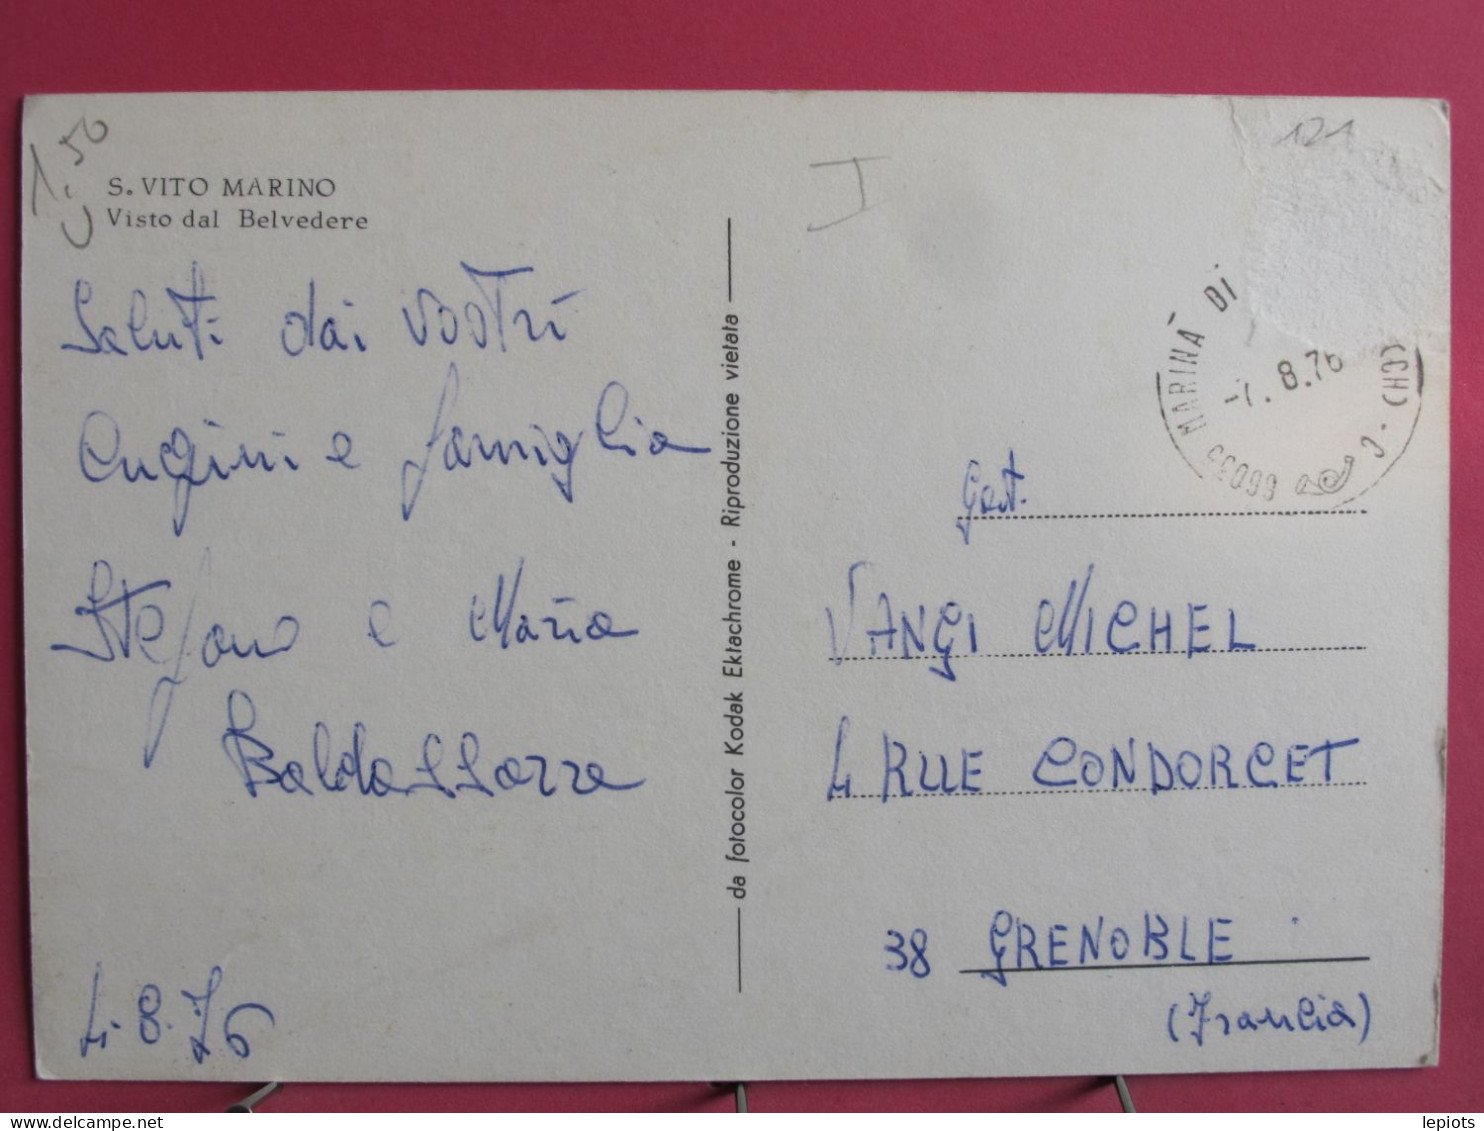 1,50
S. VITO MARINO
Visto dal Belvedere
Saluti dai vostri
Cugini e famiglia
Stefano e Maria
Baldassarra
4.8.76
da fotocolor Kodak Ektachrome - Riproduzione vietata
I
121
66033 MARINA DI
(CH) • C
-7.8.76
Gent.
VANGI MICHEL
4 RUE CONDORCET
38 GRENOBLE
(Francia)
delcampe.net
lepiots